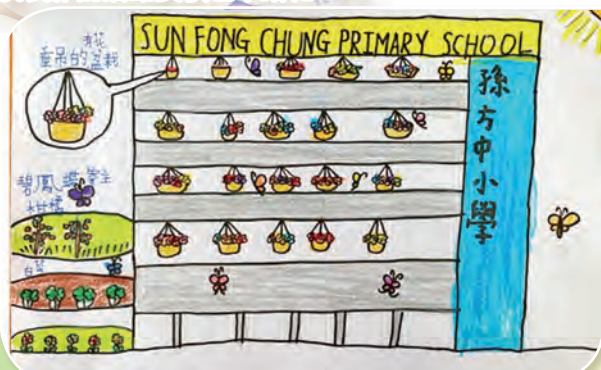 SUN FONG CHUNG PRIMARY SCHOOL
有花
垂吊的盆栽
孫方中小學
碧鳳蝶寄主
柑橘
白菜